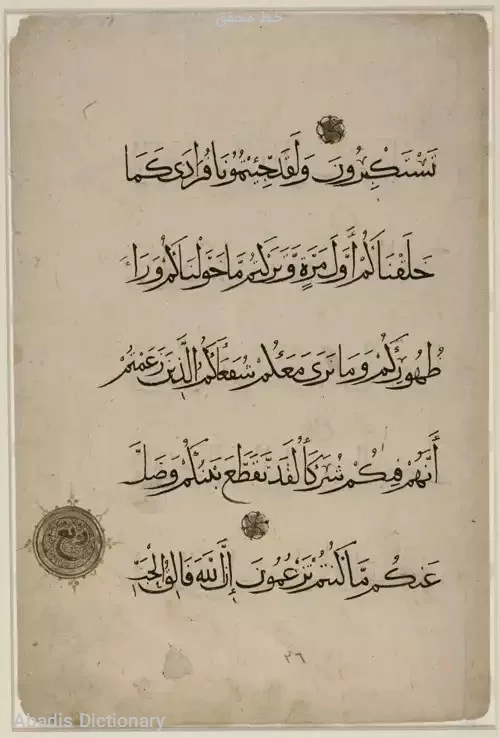 خط محقق
تَسْتَكْبِرُونَ وَلَقَدْ جِئْتُمُونَا فُرَادَى كَمَا
خَلَقْنَاكُمْ أَوَّلَ مَرَّةٍ وَتَرَكْتُمْ مَا خَوَّلْنَاكُمْ وَرَاءَ
ظُهُورِكُمْ وَمَا نَرَى مَعَكُمْ شُفَعَاءَكُمُ الَّذِينَ زَعَمْتُمْ
أَنَّهُمْ فِيكُمْ شُرَكَاءُ لَقَدْ تَقَطَّعَ بَيْنَكُمْ وَضَلَّ
عَنْكُمْ مَا كُنْتُمْ تَزْعُمُونَ إِنَّ اللَّهَ فَالِقُ الْحَبِّ
ربع
٢٦
Abadis Dictionary